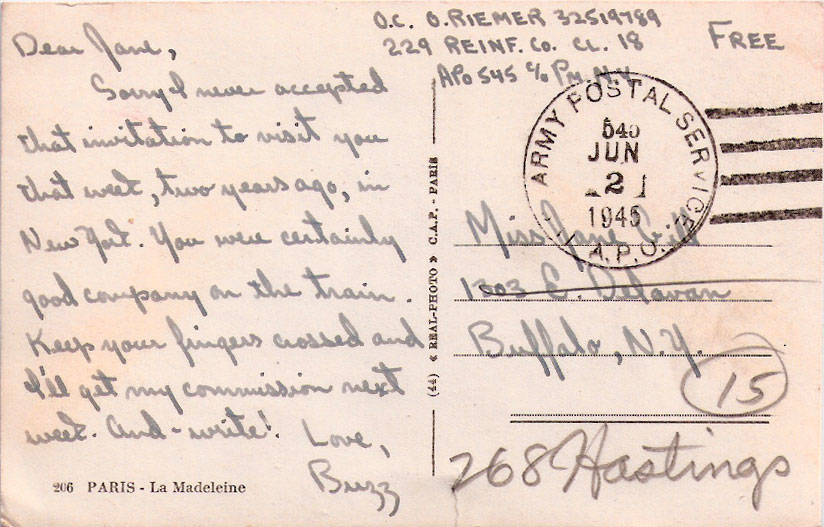 Dear Jane,
Sorry I never accepted
that invitation to visit you
that week, two years ago, in
New York. You were certainly
good company on the train.
Keep your fingers crossed and
I'll get my commission next
week. And - write! Love,
Buzz
206 PARIS - La Madeleine
(44) « REAL-PHOTO » C.A.P. - PARIS
O.C. O. RIEMER 32519789
229 REINF. Co. CL. 18
APO 545 c/o Pm. N.Y
FREE
ARMY POSTAL SERVICE
545
JUN
2
1945
A.P.O.
Miss Jane Gill
1303 E. Delavan
Buffalo, N.Y.
15
268 Hastings